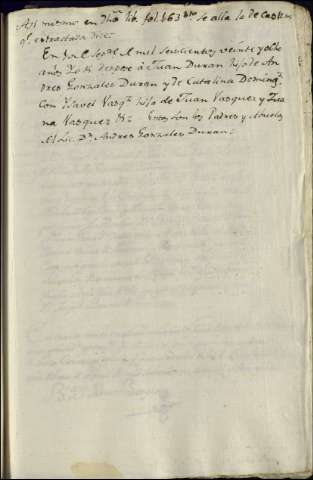 Asi mesmo en dho lib. fol. 163 vto se alla la de casam
qe extractada dice
En 30 de Sepe. de mil seiscientos veinte y ocho
años Yo B. despose à Juan Duran hijo de An
dres Gonzales Duran y de Catalina Doming.
Con Isavel Vasqz hija de Juan Vasquez y Jua
na Vasquez &a estos son los Padres y Abuelos
del Lic. Dn Andres Gonzales Duran